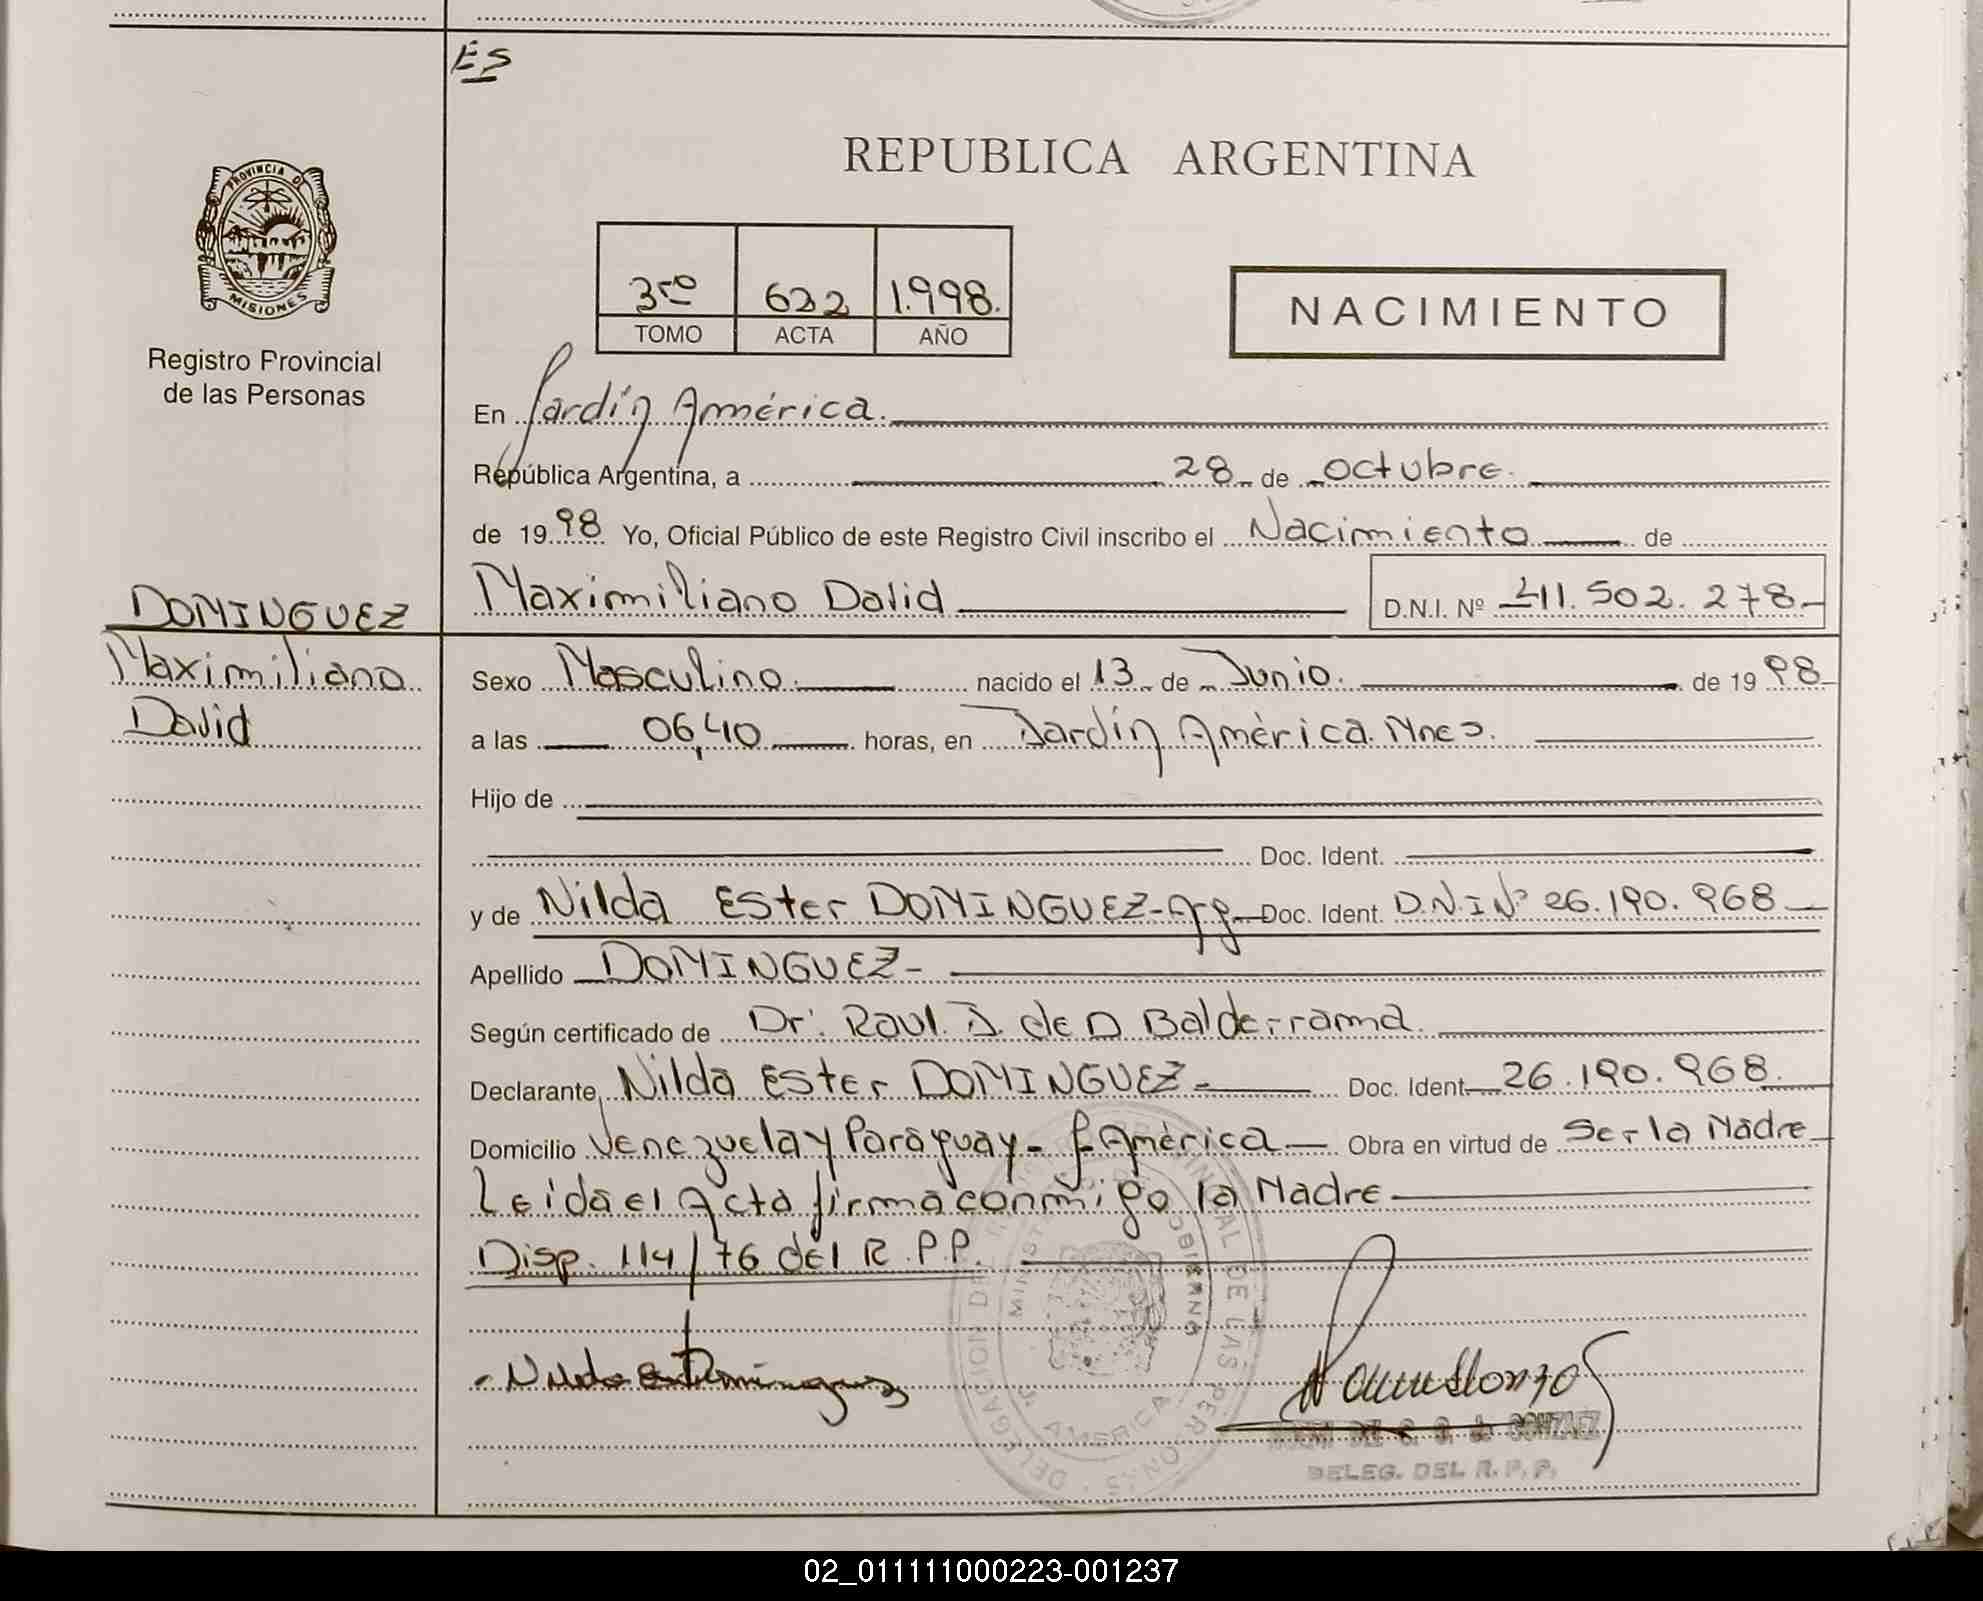 ES
PROVINCIA DE
MISIONES
Registro Provincial
de las Personas
REPUBLICA ARGENTINA
3ro 622 1.998.
TOMO ACTA AÑO
NACIMIENTO
En Jardín América.
República Argentina, a 28 de octubre.
de 1998 Yo, Oficial Público de este Registro Civil inscribo el Nacimiento de
DOMINGUEZ
Maximiliano David D.N.I. Nº 411.502.278
Maximiliano
David
Sexo Masculino. nacido el 13 de Junio. de 1998
a las 06,40 horas, en Jardín América. Mnes.
Hijo de
Doc. Ident.
y de Nilda Ester DOMINGUEZ-Arg. Doc. Ident. D.N.I Nº 26.190.968
Apellido DOMINGUEZ-
Según certificado de Dr. Raul. J. de D Balderrama.
Declarante, Nilda Ester DOMINGUEZ- Doc. Ident 26.190.968.
Domicilio Venezuela y Paraguay- J. América Obra en virtud de Ser la Madre
Leida el Acta firma conmigo la Madre
Disp. 114/76 del R.P.P.
DELEGACION DEL REGISTRO PROVINCIAL DE LAS PERSONAS
AMERICA
Nilda E Dominguez
GONZALEZ
DELEG. DEL R.P.P.
02_011111000223-001237